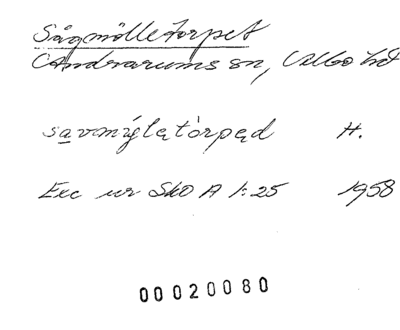 Sågmölletorpet
Andrarums sn, Albo hd
savmýlẹtòrpẹd H.
Exc ur Sko A 1:25 1958
00020080